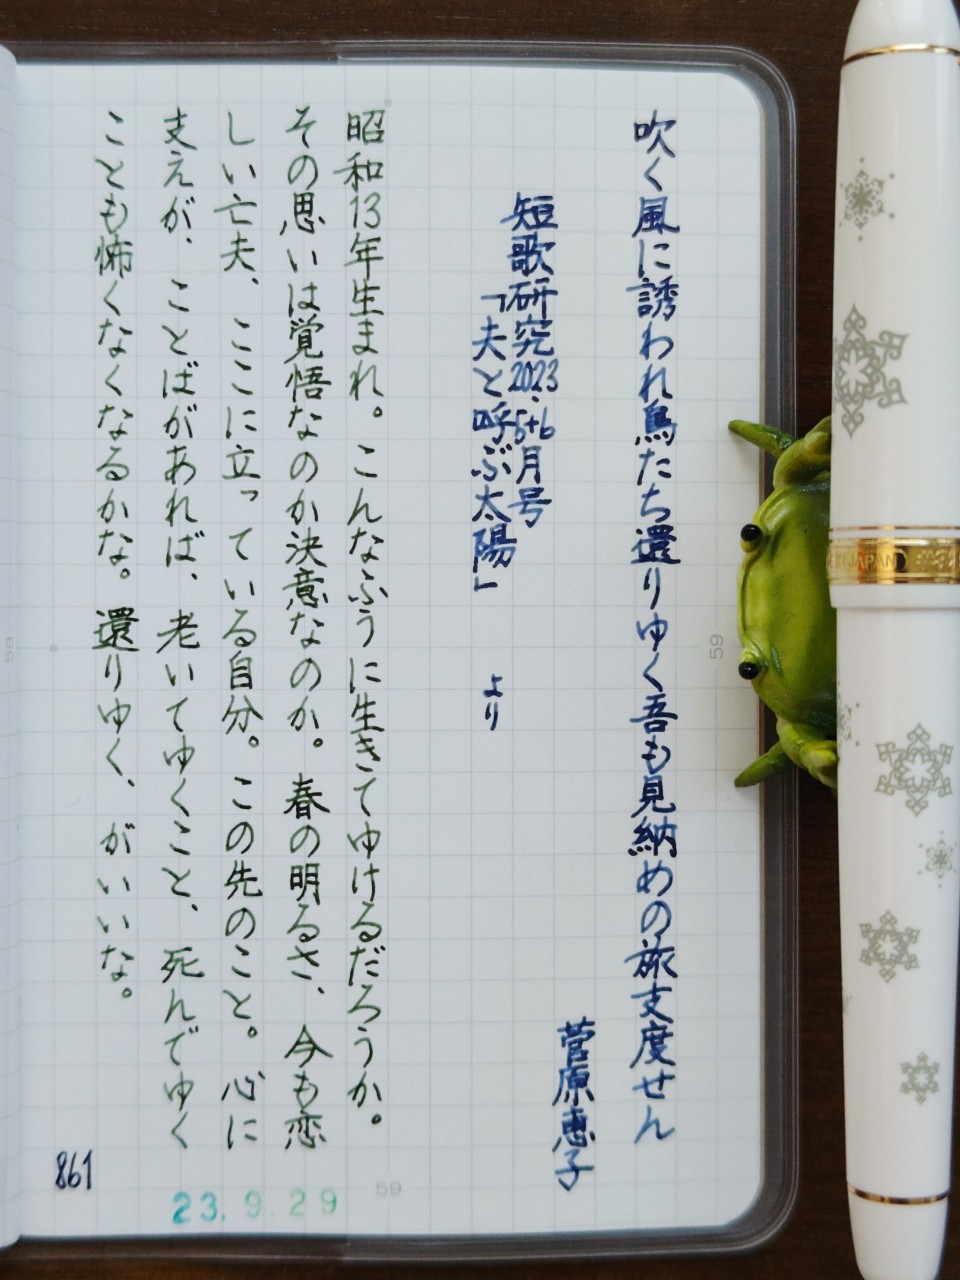 吹く風に誘われ鳥たち還りゆく吾も見納めの旅支度せん
菅原恵子
短歌研究2023.5+6月号
「夫と呼ぶ太陽」 より
昭和13年生まれ。こんなふうに生きてゆけるだろうか。
その思いは覚悟なのか決意なのか。春の明るさ、今も恋
しい亡夫、ここに立っている自分。この先のこと。心に
支えが、ことばがあれば、老いてゆくこと、死んでゆく
ことも怖くなくなるかな。還りゆく、がいいな。
861
23.9.29
59
59
JAPAN